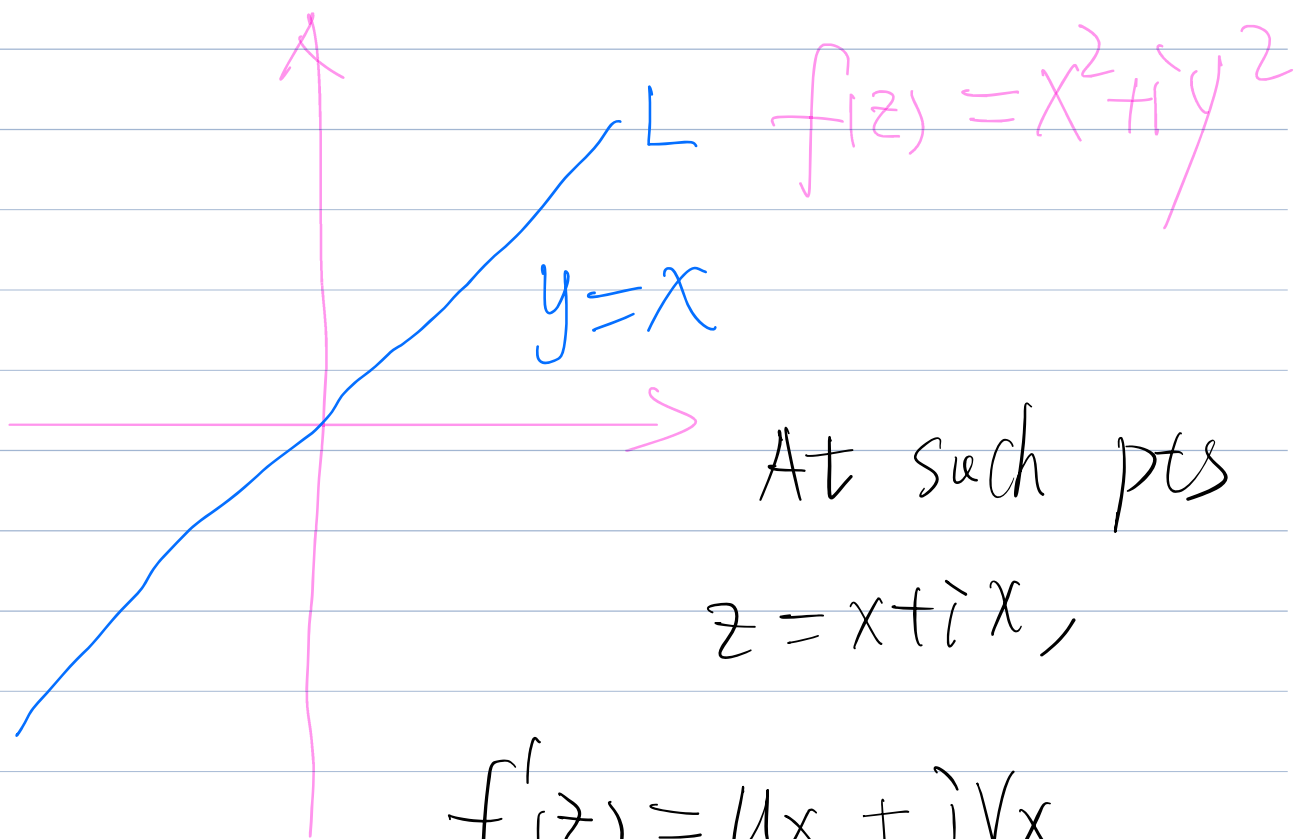 f(z) = x² + iy²
L
y = x
At such pts
z = x + ix,
f'(z) = Ux + iVx